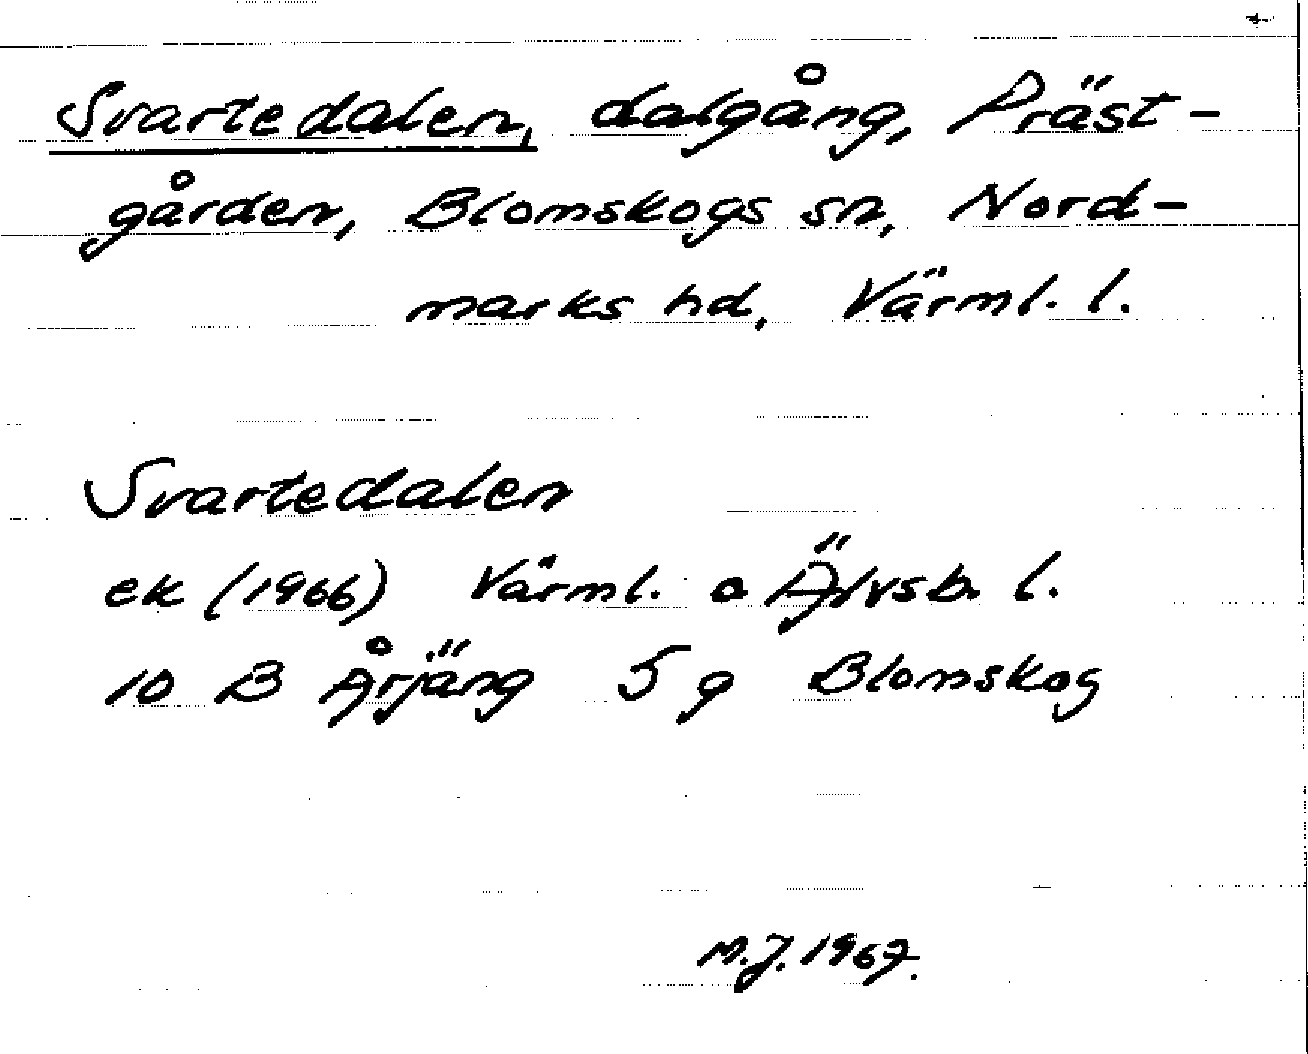 Svartedalen, dalgång, Präst-
gården, Blomskogs sn, Nord-
marks hd, Värml. l.
Svartedalen
ek (1966) Värml. o Älvsb. l.
10 B Årjäng 5 g Blomskog
M.J. 1967.